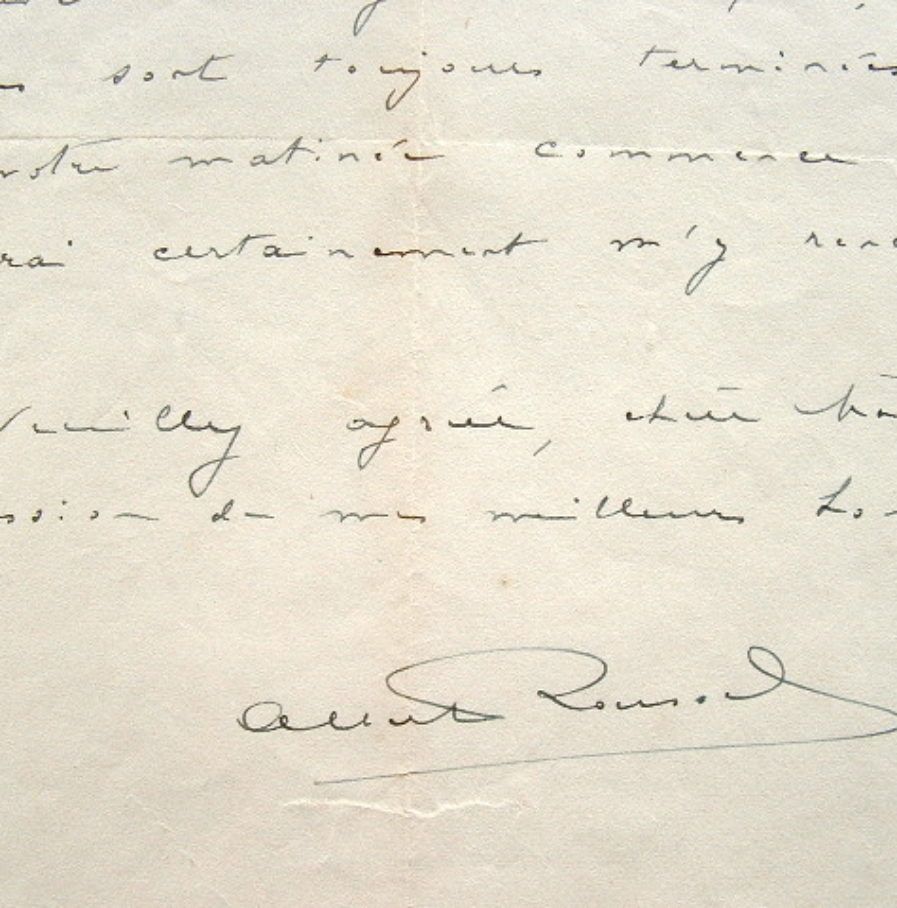 sont toujours terminées
votre matinée commence
rai certainement m'y rend
Veuillez agréer, chère Ma
ssion de mes meilleurs ho
Albert Roussel